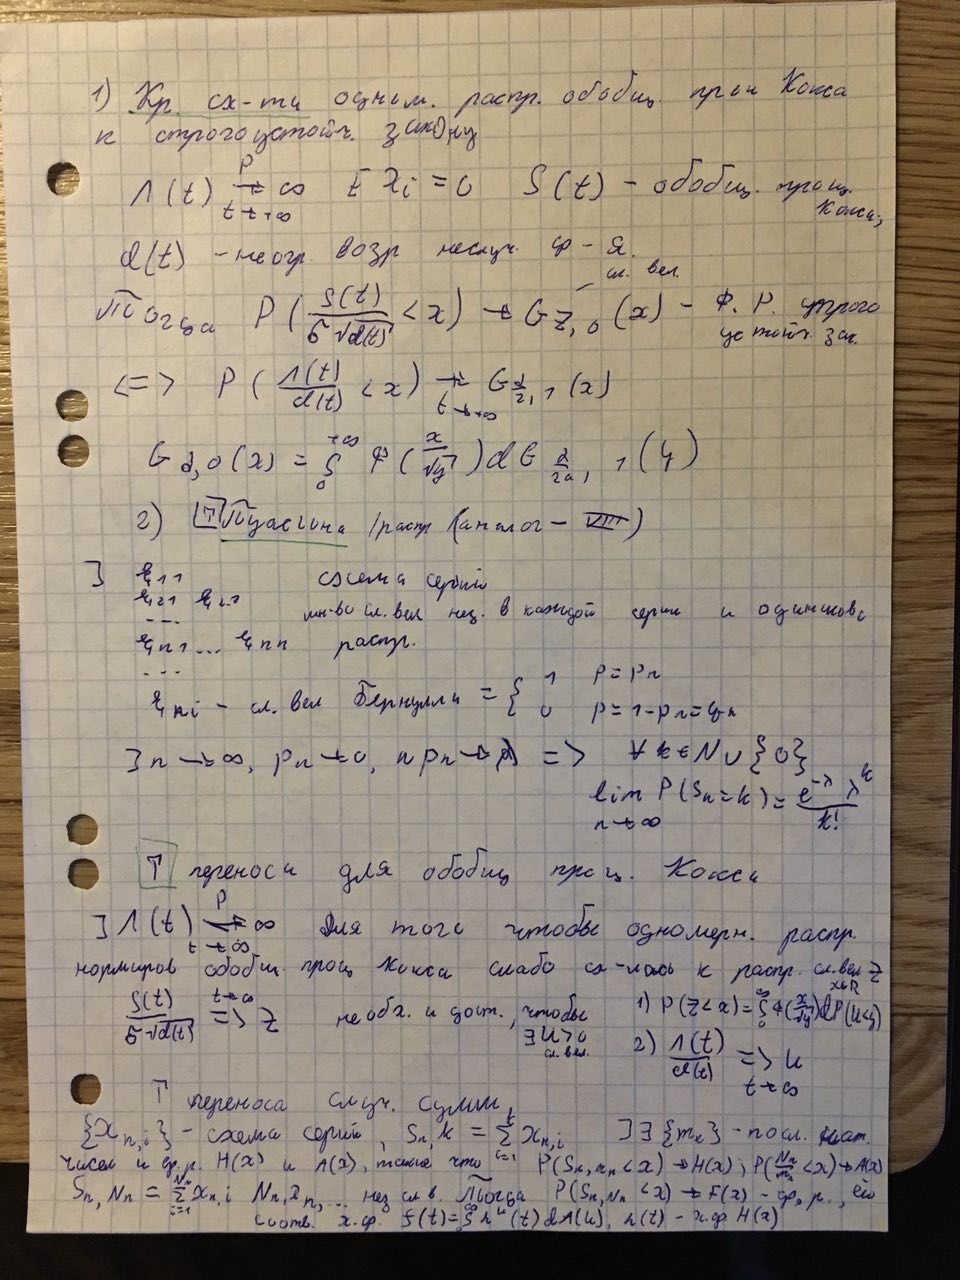 1) Кр. сх-ти одном. распр. обобщ. проц Кокса
к строгоустойч. закону
Λ(t) →^P_{t→+∞} ∞ E X_i = 0 S(t) – обобщ. проц. Кокса,
d(t) – неогр. возр неслуч. ф-я.
сл. вел.
Тогда P(S(t)/(σ√d(t)) < x) → G_{Z,0}(x) – Ф. Р. строго устойч. зак.
<=> P(Λ(t)/d(t) < x) →_{t→+∞} G_{α/2,1}(x)
G_{α,0}(x) = ∫_0^{+∞} Φ(x/√y) dG_{α/2,1}(y)
2) Т Пуассона /распр (аналог –
] ξ_{11} схема серий
ξ_{21} ξ_{22} мн-во сл. вел нез. в каждой серии и одинаково
...
ξ_{n1} ... ξ_{nn} распр.
...
ξ_{ni} – сл. вел Бернулли = { 1 p = p_n
0 p = 1-p_n = q_n
] n → ∞, p_n → 0, n p_n → λ => ∀ k ∈ N ∪ {0}
lim_{n→∞} P(S_n = k) = e^{-λ} λ^k / k!
Т переноса для обобщ проц. Кокса
] Λ(t) →^P_{t→∞} ∞ Для того чтобы одномерн. распр.
нормиров обобщ. проц Кокса слабо сх-лось к распр. сл. вел Z
S(t)/(σ√d(t)) =>^{t→∞} Z необх. и дост., чтобы ∃ U > 0 сл. вел. 1) P(Z < x) = ∫_0^∞ Φ(x/√y) dP(U < y) x ∈ R
2) Λ(t)/d(t) =>_{t→∞} U
Т переноса случ. сумм
{X_{n,i}} – схема серий, S_{n,k} = Σ_{i=1}^k X_{n,i} ] ∃ {m_n} – посл. нат.
чисел и ф.р. H(x) и A(x), такие что P(S_{n,m_n} < x) → H(x), P(N_n/m_n < x) → A(x)
S_{n,N_n} = Σ_{i=1}^{N_n} X_{n,i} N_n, X_{n,1} ... нез сл в. Тогда P(S_{n,N_n} < x) → F(x) – ф. р., его
соотв. х.ф. f(t) = ∫_0^∞ h^u(t) dA(u), h(t) – х.ф H(x)